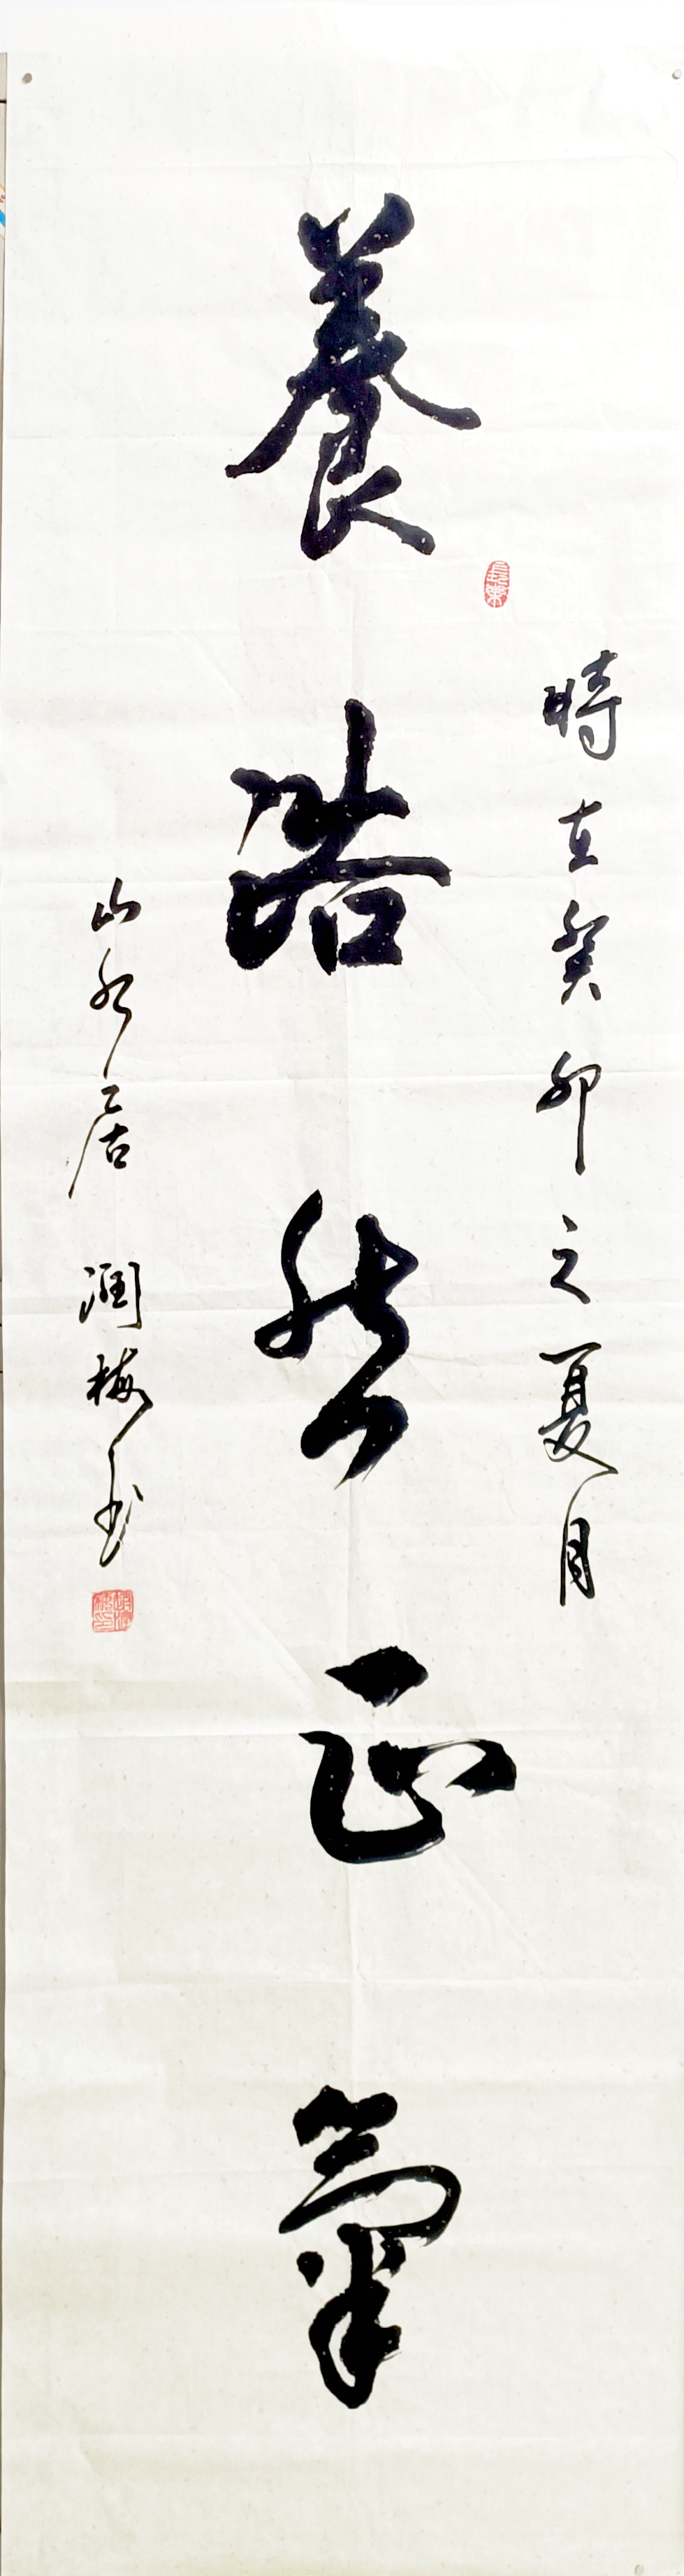 時在癸卯之夏月
養浩然正氣
山水居 潤梅書